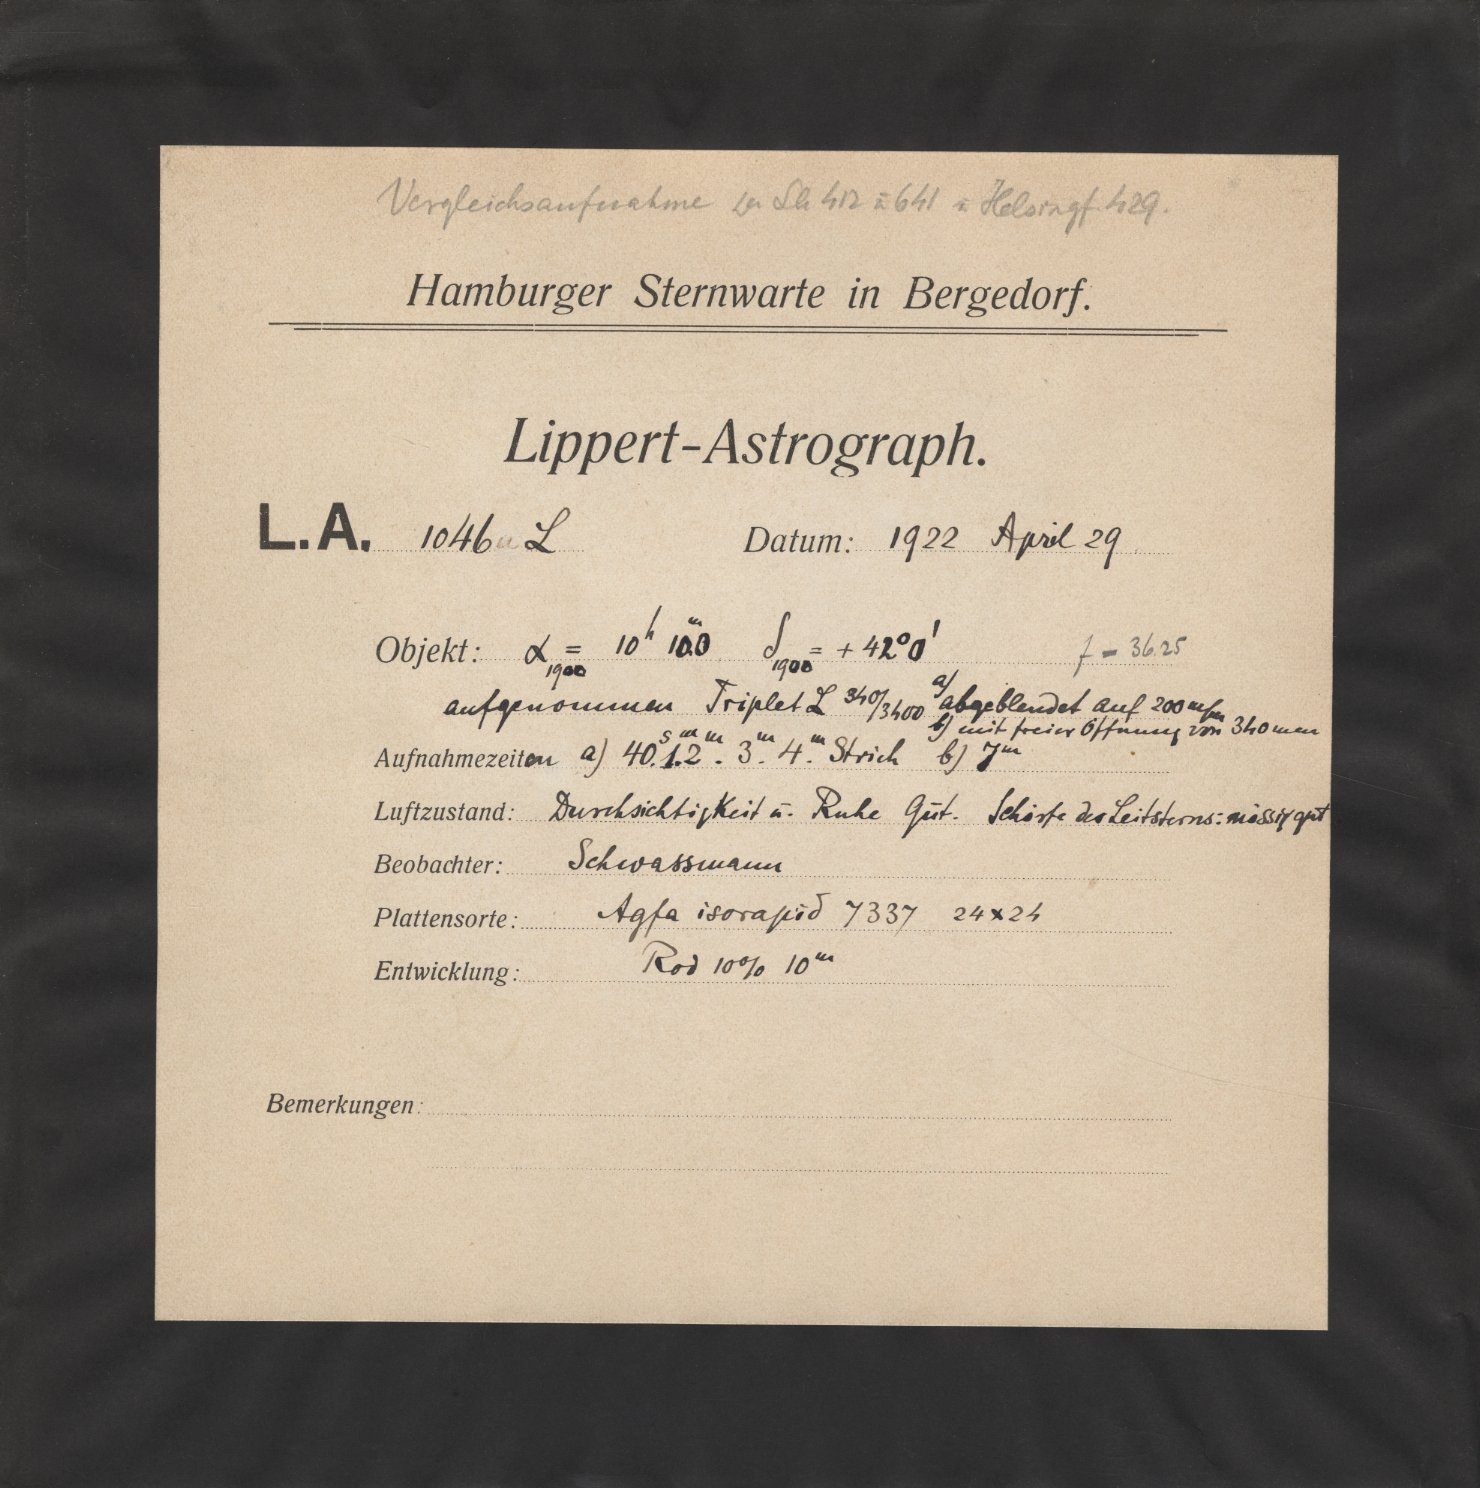 Vergleichsaufnahme zu 412 u 641 u Helsingf. 429.
Hamburger Sternwarte in Bergedorf.
Lippert-Astrograph.
L.A. 1046 L Datum: 1922 April 29
Objekt: α₁₉₀₀ = 10ʰ 10ᵐ.0 δ₁₉₀₀ = + 42° 0' f = 36.25
aufgenommen Triplet L 340/3400 a) abgeblendet auf 200 mm
b) mit freier Öffnung von 340 mm
Aufnahmezeiten a) 40ˢ. 1ᵐ. 2ᵐ. 3ᵐ. 4ᵐ. Strich b) 7ᵐ
Luftzustand: Durchsichtigkeit u. Ruhe Gut. Schärfe des Leitsterns: mässig gut
Beobachter: Schwassmann
Plattensorte: Agfa isorapid 7337 24×24
Entwicklung: Rod 10% 10ᵐ
Bemerkungen: